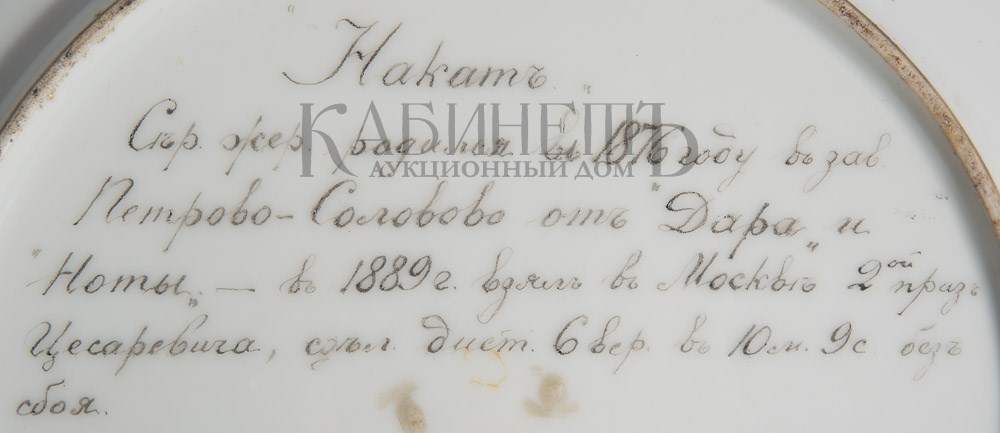 "Накатъ"
Сѣр. жер. родился въ 1876 году въ зав.
Петрово-Соловово отъ "Дара" и
"Ноты" — въ 1889 г. взялъ въ Москвѣ 2ой призъ
Цесаревича, сдѣл. дист. 6 вер. въ 10 м. 9 с. безъ
сбоя.
КАБИНЕТЪ
АУКЦИОННЫЙ ДОМ